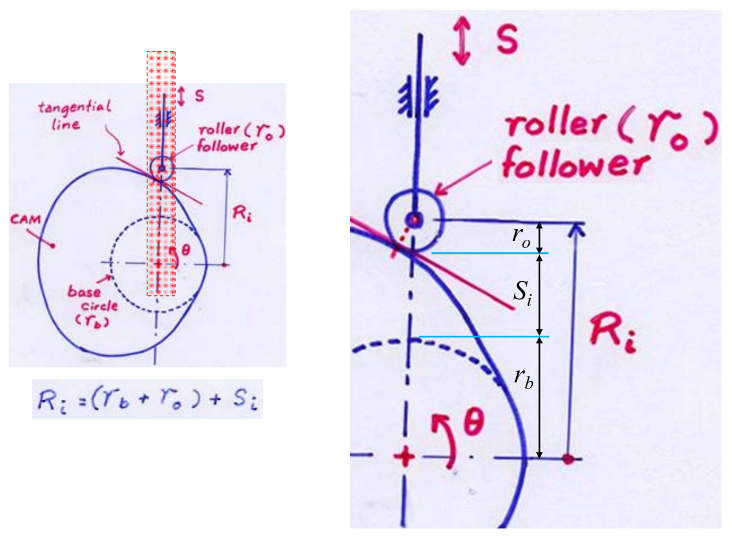 S
tangential
line
roller (r₀)
follower
Rᵢ
CAM
θ
base
circle
(r_b)
Rᵢ = (r_b + r₀) + Sᵢ
S
roller (r₀)
follower
rₒ
Sᵢ
Rᵢ
r_b
θ